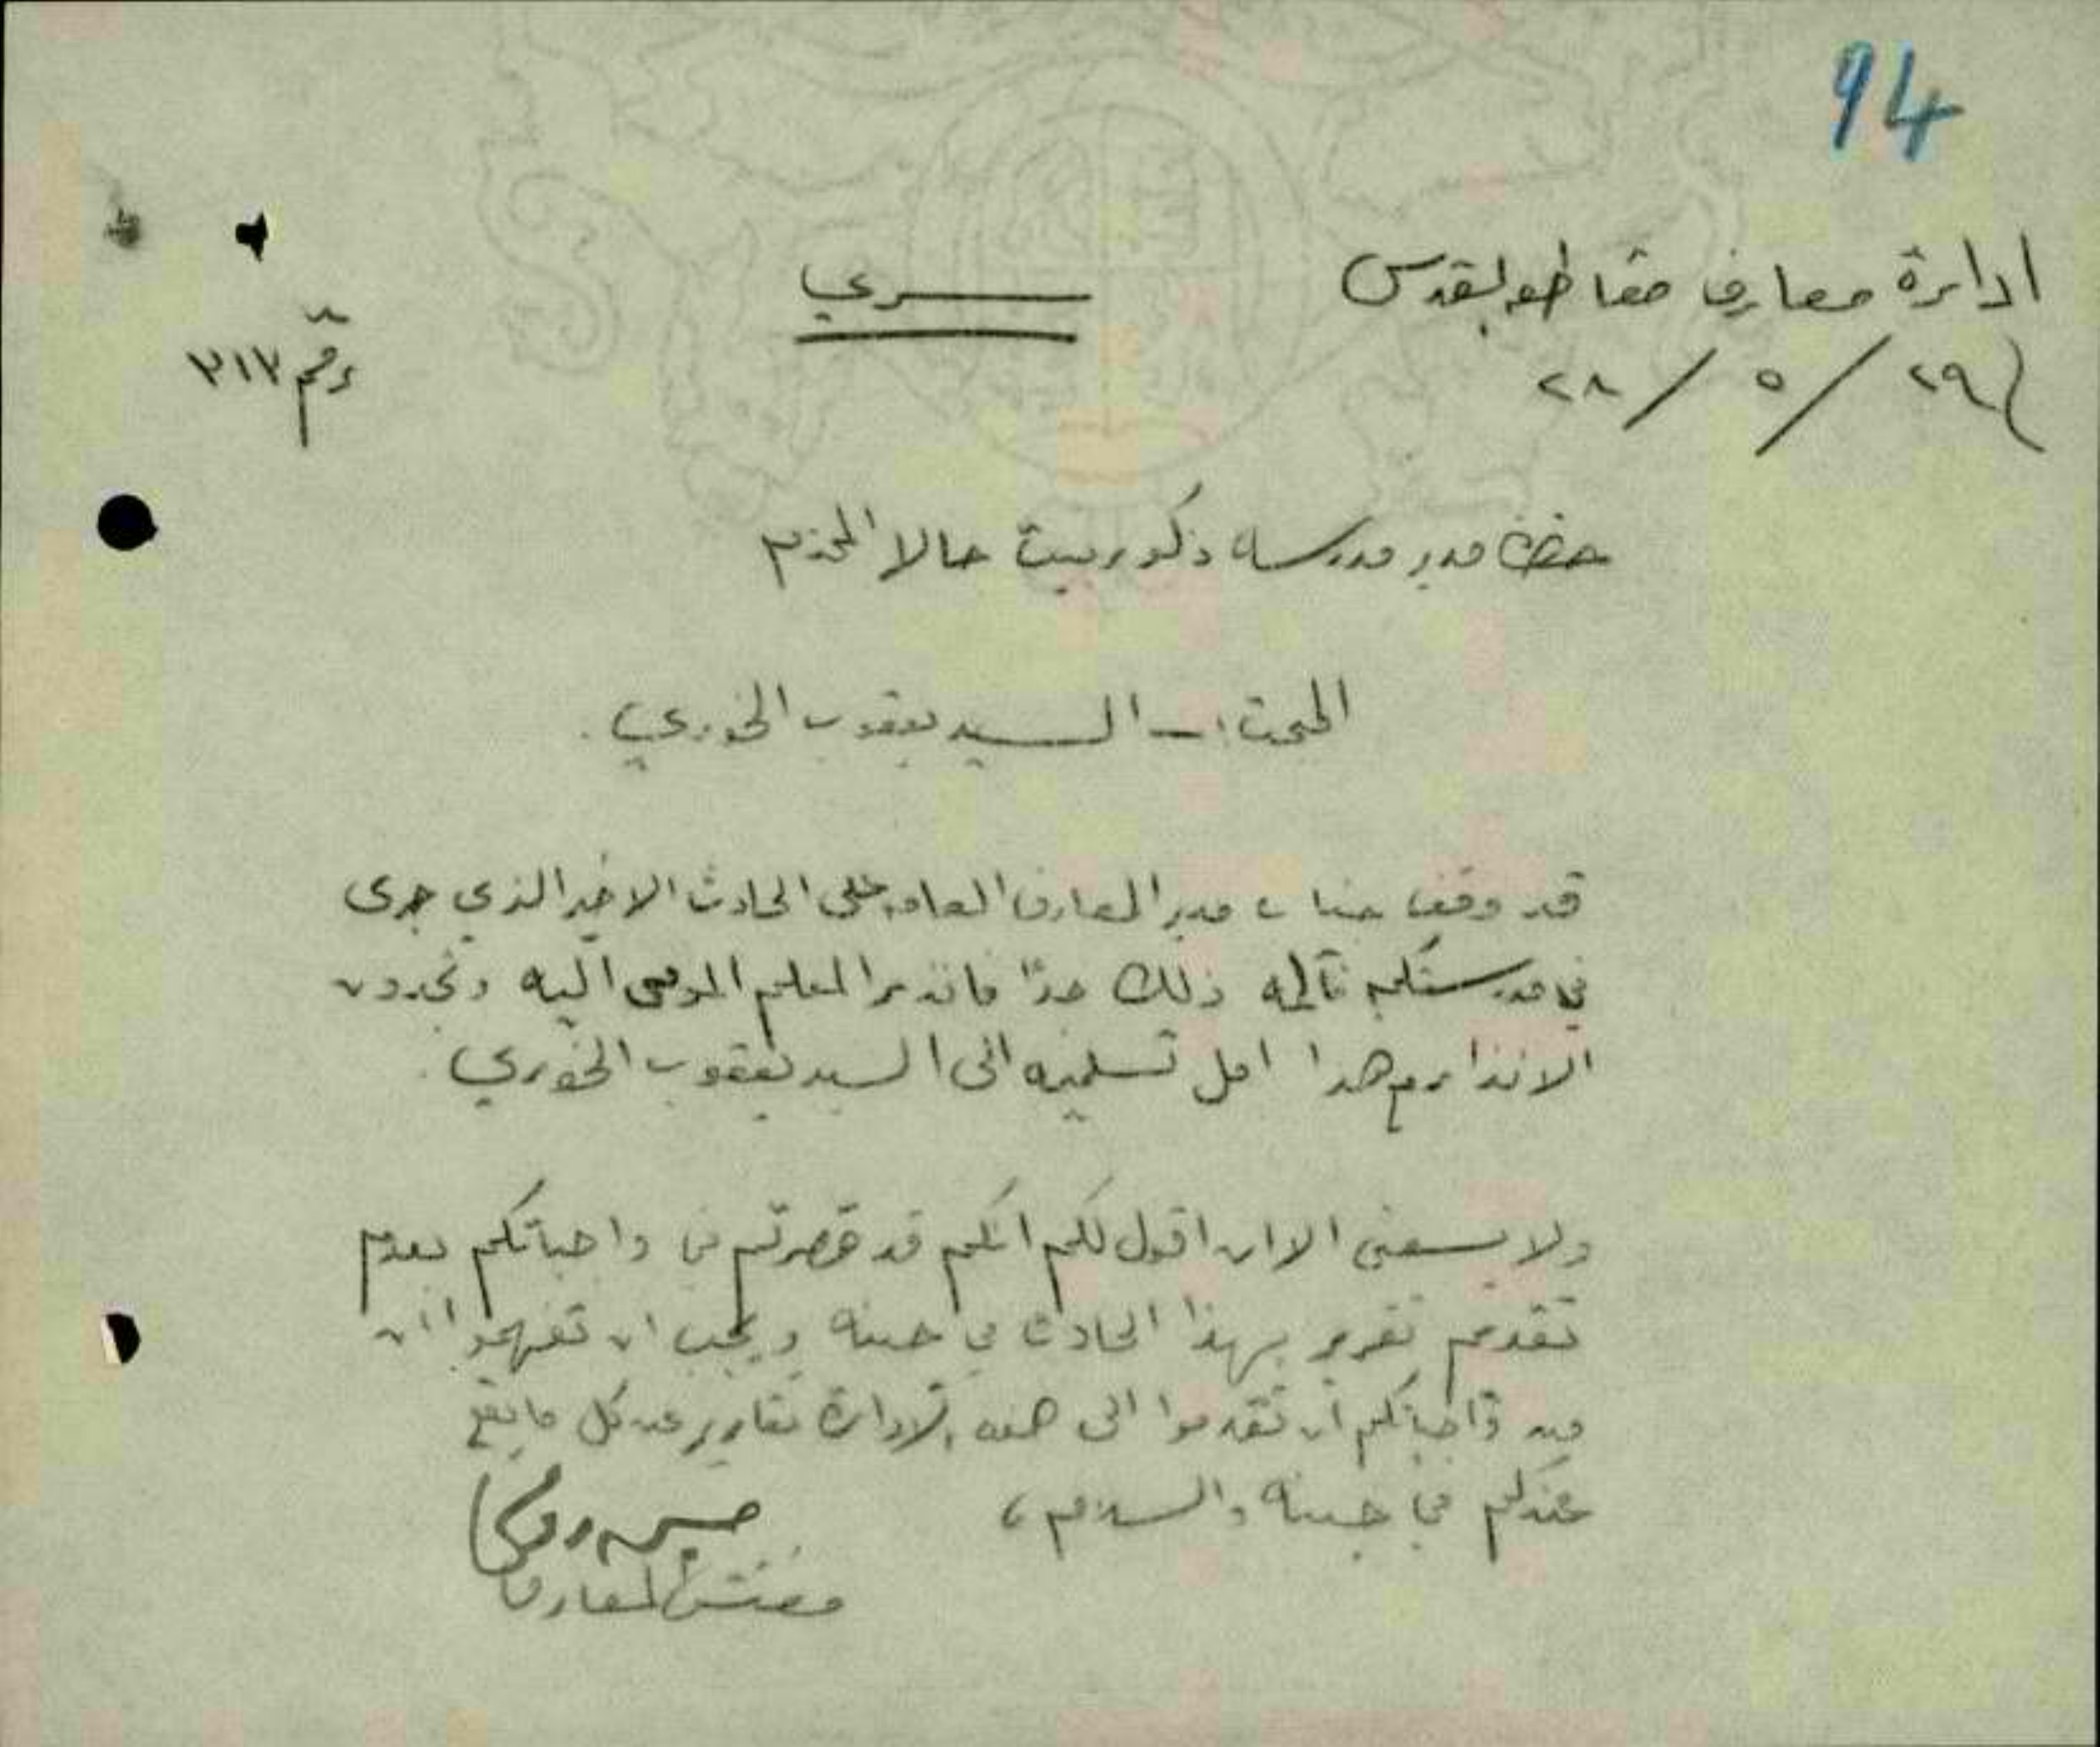 94
ادارة معارف مقاطعة القدس
سري
٢٩ / ٥ / ٢٨
رقم ٣١٧
حضرة مدير مدرسة ذكور بيت جالا المحترم
المبحث :- السيد يعقوب الخوري .
قد وقف جناب مدير المعارف العام على الحادث الاخير الذي جرى
في مدرستكم فآلمه ذلك جدًا فانذر المعلم الموما اليه وتجدون
الانذار مع هذا امل تسليمه الى السيد يعقوب الخوري .
ولا يسعني الا ان اقول لكم انكم قد قصرتم في واجباتكم بعدم
تقديم تقرير بهذا الحادث في حينه ويجب ان تفهموا ان
من واجباتكم ان تقدموا الى هذه الادارة تقارير عن كل ما يقع
عندكم في حينه والسلام ،
حسين روحي
مفتش المعارف